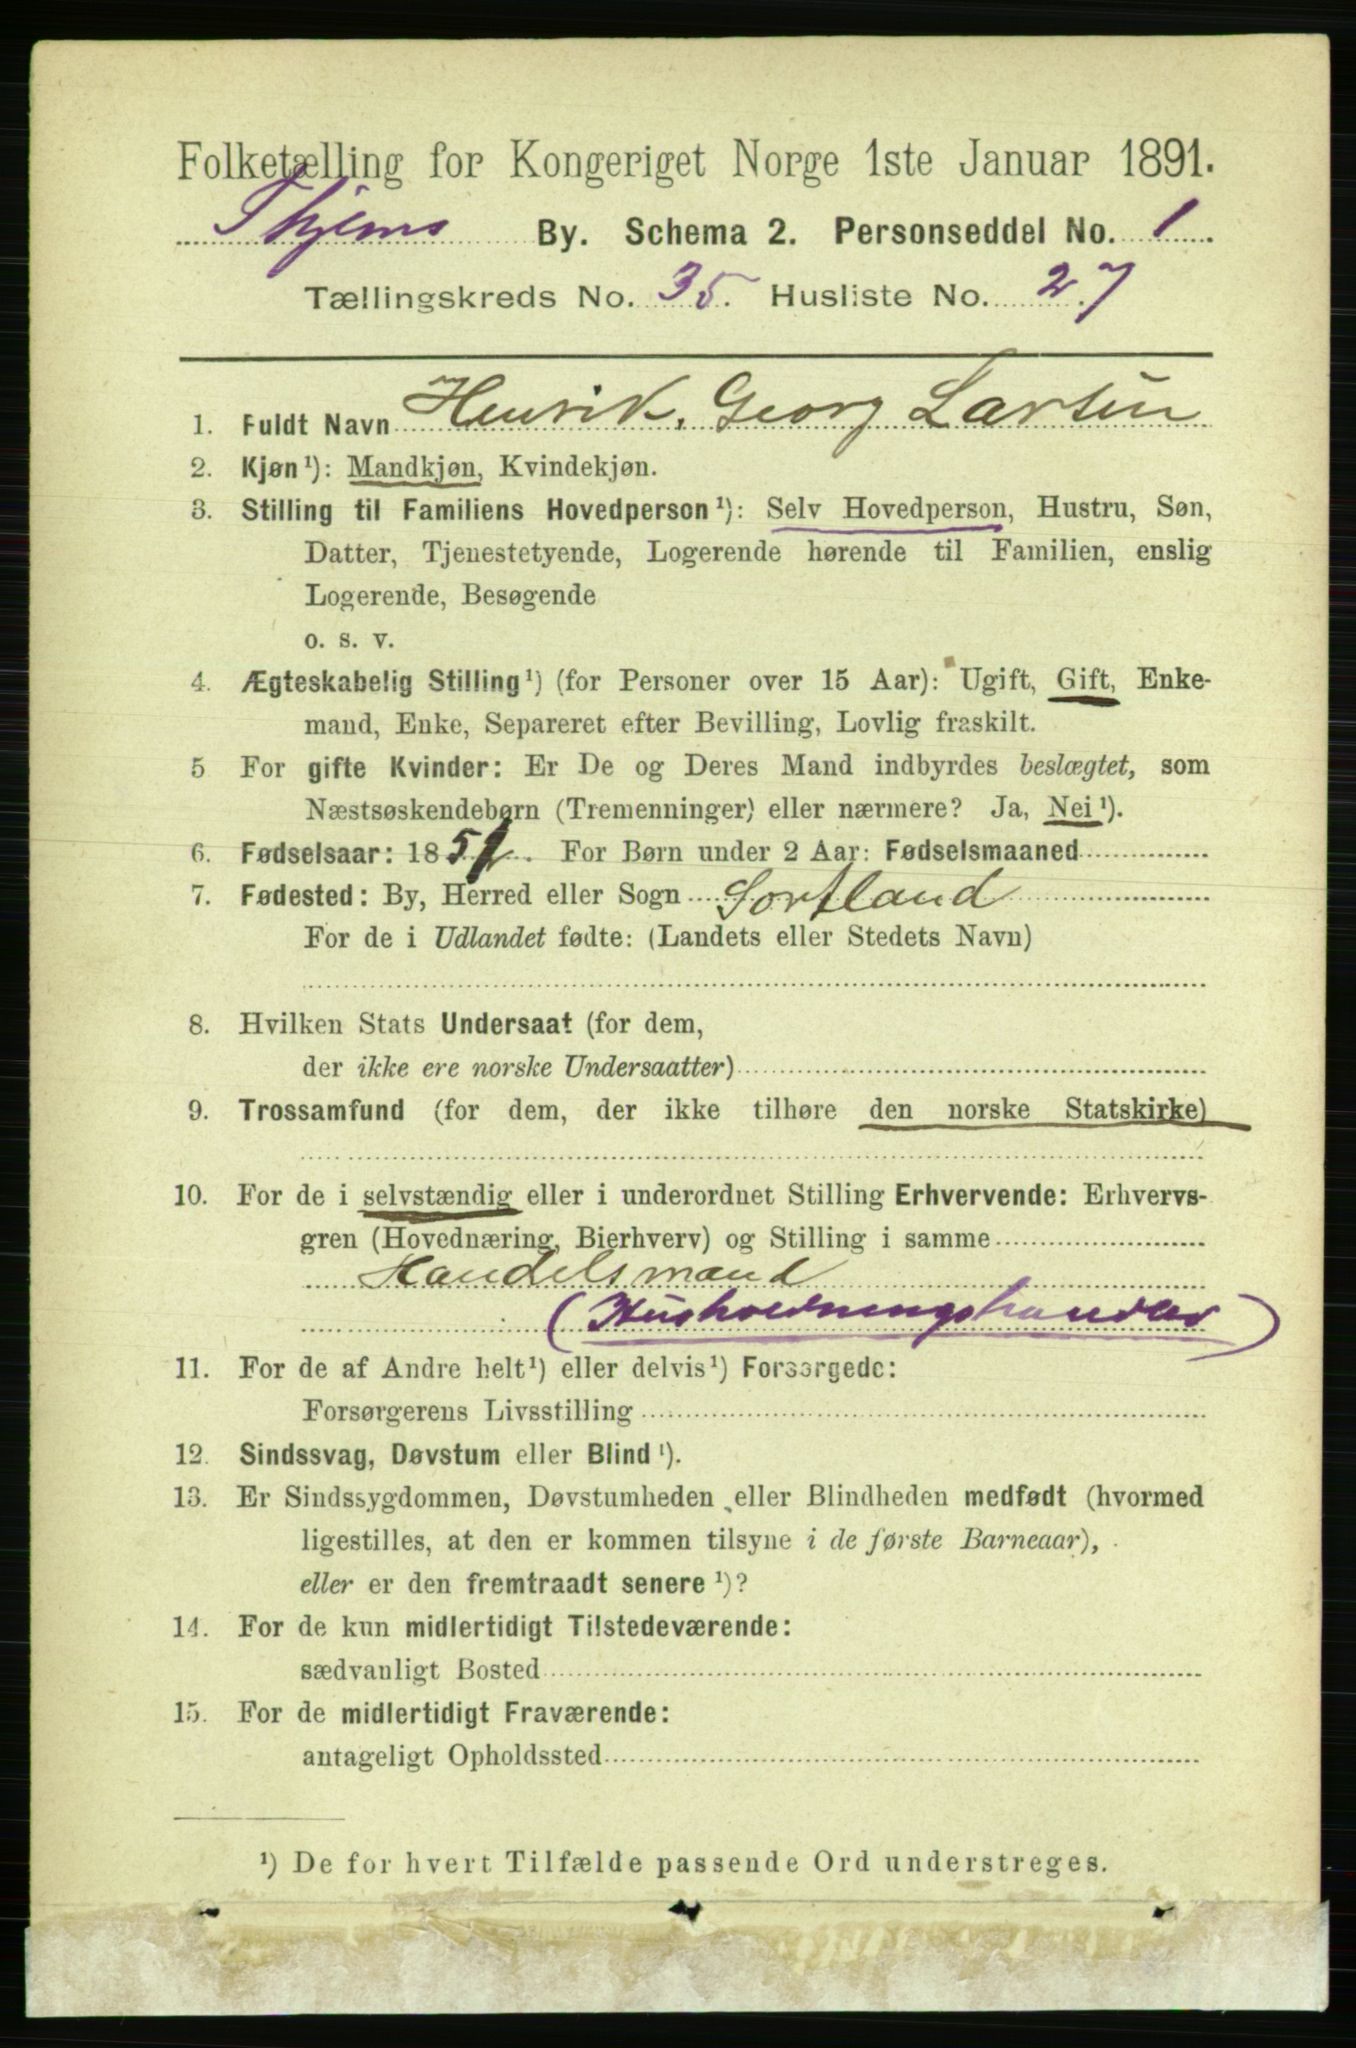 Folketælling for Kongeriget Norge 1ste Januar 1891.
Thjems By. Schema 2. Personseddel No. 1
Tællingskreds No. 35. Husliste No. 27
1. Fuldt Navn Henrik, Georg Larsen
2. Kjøn¹): Mandkjøn, Kvindekjøn.
3. Stilling til Familiens Hovedperson¹): Selv Hovedperson, Hustru, Søn,
Datter, Tjenestetyende, Logerende hørende til Familien, enslig
Logerende, Besøgende
o. s. v.
4. Ægteskabelig Stilling¹) (for Personer over 15 Aar): Ugift, Gift, Enke-
mand, Enke, Separeret efter Bevilling, Lovlig fraskilt.
5 For gifte Kvinder: Er De og Deres Mand indbyrdes beslægtet, som
Næstsøskendebørn (Tremenninger) eller nærmere? Ja, Nei¹).
6. Fødselsaar: 185 . For Børn under 2 Aar: Fødselsmaaned
7. Fødested: By, Herred eller Sogn Sortland
For de i Udlandet fødte: (Landets eller Stedets Navn)
8. Hvilken Stats Undersaat (for dem,
der ikke ere norske Undersaatter)
9. Trossamfund (for dem, der ikke tilhøre den norske Statskirke)
10. For de i selvstændig eller i underordnet Stilling Erhvervende: Erhvervs-
gren (Hovednæring, Bierhverv) og Stilling i samme
Handelsmand
(Husholdningshandler)
11. For de af Andre helt¹) eller delvis¹) Forsørgede:
Forsørgerens Livsstilling
12. Sindssvag, Døvstum eller Blind¹).
13. Er Sindssygdommen, Døvstumheden eller Blindheden medfødt (hvormed
ligestilles, at den er kommen tilsyne i de første Barneaar),
eller er den fremtraadt senere¹)?
14. For de kun midlertidigt Tilstedeværende:
sædvanligt Bosted
15. For de midlertidigt Fraværende:
antageligt Opholdssted
¹) De for hvert Tilfælde passende Ord understreges.